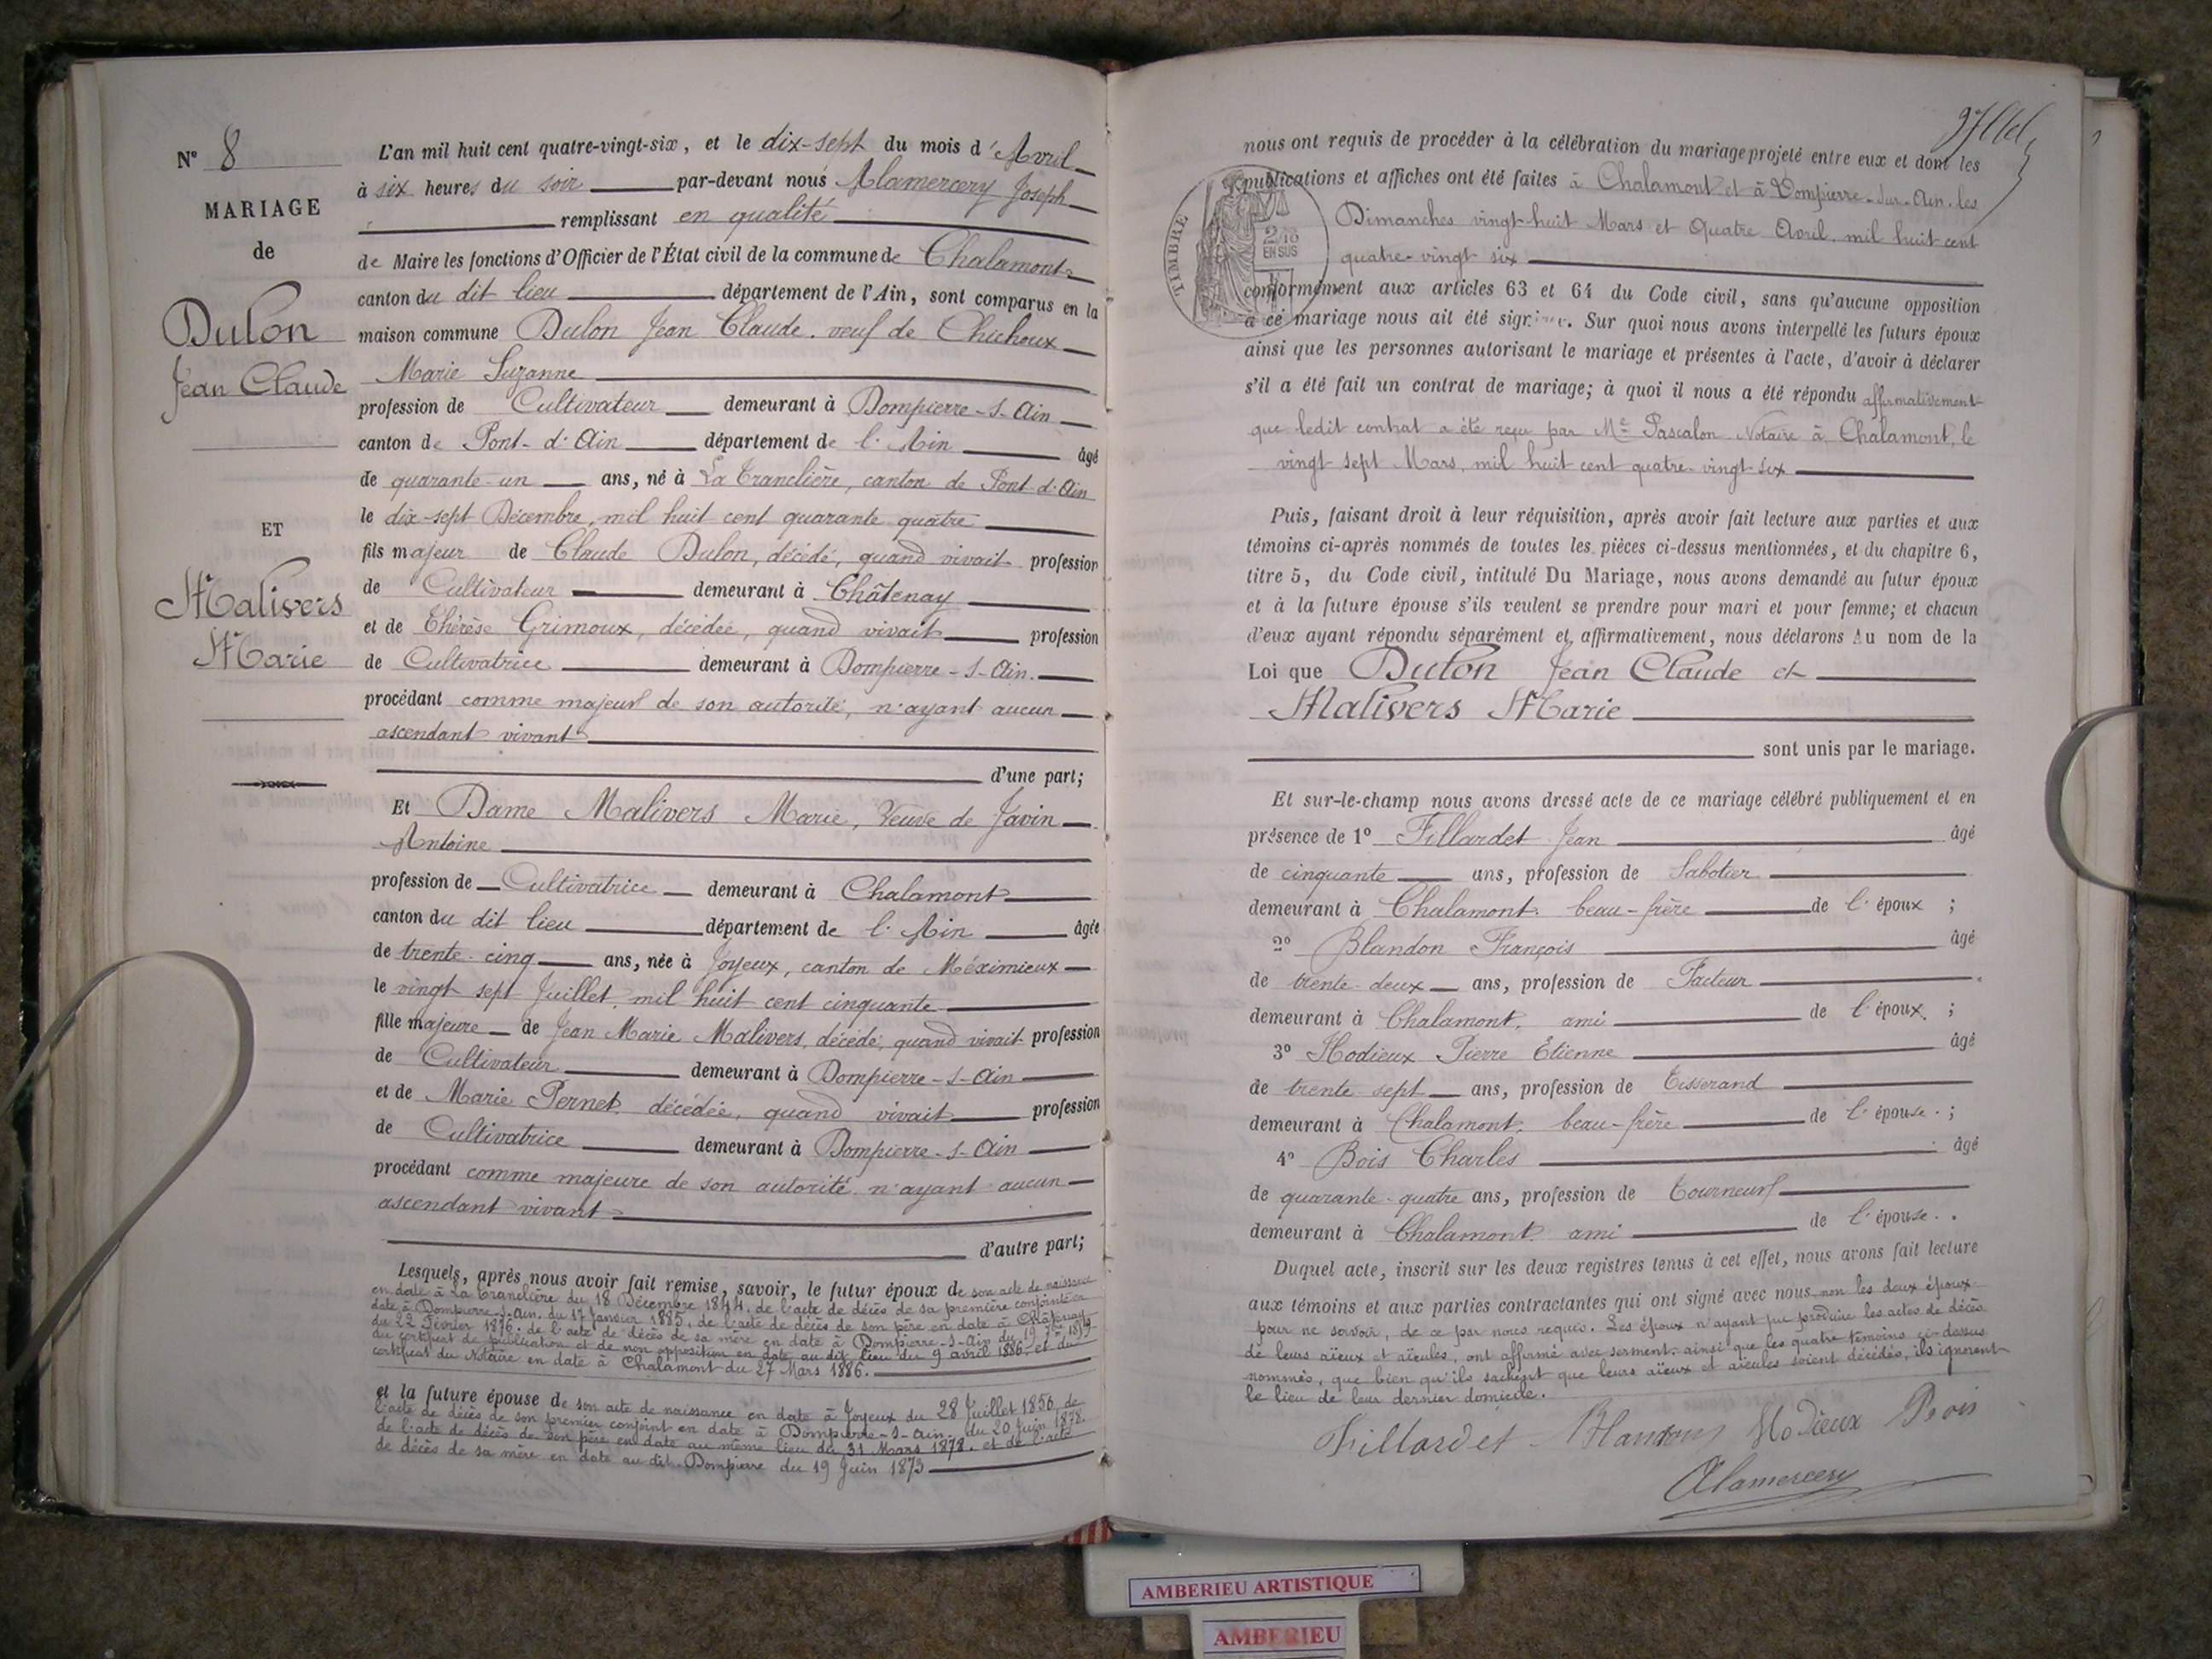 N° 8
MARIAGE
de
Dulon
Jean Claude
ET
Malivers
Marie
L'an mil huit cent quatre-vingt-six, et le dix-sept du mois d'Avril
à six heures du soir par-devant nous Alamercery Joseph
remplissant en qualité
de Maire les fonctions d'Officier de l'État civil de la commune de Chalamont
canton du dit lieu département de l'Ain, sont comparus en la
maison commune Dulon Jean Claude. veuf de Chichoux
Marie Suzanne
profession de Cultivateur demeurant à Dompierre-s-Ain
canton de Pont-d'Ain département de l'Ain âgé
de quarante-un ans, né à La Tranclière, canton de Pont-d'Ain
le dix-sept Décembre, mil huit cent quarante quatre
fils majeur de Claude Dulon, décédé, quand vivait profession
de Cultivateur demeurant à Châtenay
et de Thérèse Grimoux, décédée, quand vivait profession
de Cultivatrice demeurant à Dompierre-s-Ain.
procédant comme majeur de son autorité, n'ayant aucun
ascendant vivant
d'une part;
Et Dame Malivers Marie, Veuve de Javin
Antoine
profession de Cultivatrice demeurant à Chalamont
canton du dit lieu département de l'Ain âgée
de trente-cinq ans, née à Joyeux, canton de Méximieux
le vingt sept Juillet, mil huit cent cinquante
fille majeure de Jean Marie Malivers, décédé, quand vivait profession
de Cultivateur demeurant à Dompierre-s-Ain
et de Marie Pernet, décédée, quand vivait profession
de Cultivatrice demeurant à Dompierre-s-Ain
procédant comme majeure de son autorité n'ayant aucun
ascendant vivant
d'autre part;
Lesquels, après nous avoir fait remise, savoir, le futur époux de son acte de naissance
en date à La Tranclière du 18 Décembre 1844, de l'acte de décès de sa première conjointe en
date à Dompierre-s-Ain, du 17 Janvier 1885, de l'acte de décès de son père en date à Châtenay
du 22 Février 1876, de l'acte de décès de sa mère en date à Dompierre-s-Ain du 19
du certificat de publication et de non opposition en date au dit lieu du 9 avril 1886, et du
certificat du Notaire en date à Chalamont du 27 Mars 1886.
et la future épouse de son acte de naissance en date à Joyeux du 28 Juillet 1850, de
l'acte de décès de son premier conjoint en date à Dompierre-s-Ain, du 20 Juin 1878,
de l'acte de décès de son père en date au même lieu du 31 Mars 1878, et de l'acte
de décès de sa mère en date au dit Dompierre du 19 Juin 1873
nous ont requis de procéder à la célébration du mariage projeté entre eux et dont les
publications et affiches ont été faites à Chalamont et à Dompierre-sur-Ain, les
Dimanches vingt-huit Mars et Quatre Avril, mil huit cent
quatre-vingt six
TIMBRE
2/10
EN SUS
conformément aux articles 63 et 64 du Code civil, sans qu'aucune opposition
à ce mariage nous ait été signifiée. Sur quoi nous avons interpellé les futurs époux
ainsi que les personnes autorisant le mariage et présentes à l'acte, d'avoir à déclarer
s'il a été fait un contrat de mariage; à quoi il nous a été répondu affirmativement
que ledit contrat a été reçu par Me Pascalon Notaire à Chalamont, le
vingt sept Mars, mil huit cent quatre-vingt-six
Puis, faisant droit à leur réquisition, après avoir fait lecture aux parties et aux
témoins ci-après nommés de toutes les pièces ci-dessus mentionnées, et du chapitre 6,
titre 5, du Code civil, intitulé Du Mariage, nous avons demandé au futur époux
et à la future épouse s'ils veulent se prendre pour mari et pour femme; et chacun
d'eux ayant répondu séparément et affirmativement, nous déclarons Au nom de la
Loi que Dulon Jean Claude et
Malivers Marie
sont unis par le mariage.
Et sur-le-champ nous avons dressé acte de ce mariage célébré publiquement et en
présence de 1° Fillardet Jean âgé
de cinquante ans, profession de Sabotier
demeurant à Chalamont, beau-frère de l'époux ;
2° Blandon François âgé
de trente-deux ans, profession de Facteur
demeurant à Chalamont, ami de l'époux ;
3° Hodieux Pierre Étienne âgé
de trente-sept ans, profession de Tisserand
demeurant à Chalamont, beau-frère de l'épouse ;
4° Bois Charles âgé
de quarante-quatre ans, profession de Tourneur
demeurant à Chalamont ami de l'épouse.
Duquel acte, inscrit sur les deux registres tenus à cet effet, nous avons fait lecture
aux témoins et aux parties contractantes qui ont signé avec nous, non les deux époux
pour ne savoir, de ce par nous requis. Les époux n'ayant pu produire les actes de décès
de leurs aïeux et aïeules, ont affirmé avec serment, ainsi que les quatre témoins ci-dessus
nommés, que bien qu'ils sachent que leurs aïeux et aïeules soient décédés, ils ignorent
le lieu de leur dernier domicile.
Fillardet Blandon Hodieux Bois
Alamercery
AMBERIEU ARTISTIQUE
AMBERIEU